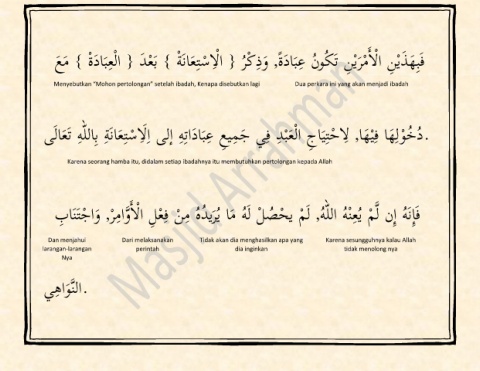 فَبِهَذَيْنِ الْأَمْرَيْنِ تَكُونُ عِبَادَةً, وَذِكْرُ { الْاِسْتِعَانَةْ } بَعْدَ { الْعِبَادَةْ } مَعَ
Dua perkara ini yang akan menjadi ibadah
Menyebutkan "Mohon pertolongan" setelah ibadah, Kenapa disebutkan lagi
دُخُوْلِهَا فِيْهَا, لِاحْتِيَاجِ الْعَبْدِ فِي جَمِيعِ عِبَادَاتِهِ إلى اِلَاِسْتِعَانَةِ بِاللهِ تَعَالَى.
Karena seorang hamba itu, didalam setiap ibadahnya itu membutuhkan pertolongan kepada Allah
فَإِنَهُ إِن لَّمْ يُعِنْهُ اللهُ, لَمْ يحْصُلْ لَهُ مَا يُرِيدُهُ مِنْ فِعْلِ الْأَوَّامِرْ, وَاجْتَنَابِ
Karena sesungguhnya kalau Allah tidak menolong nya
Tidak akan dia menghasilkan apa yang dia inginkan
Dari melaksanakan perintah
Dan menjahui larangan-larangan Nya
النَّوَاهِي.
Masjid Arrahman